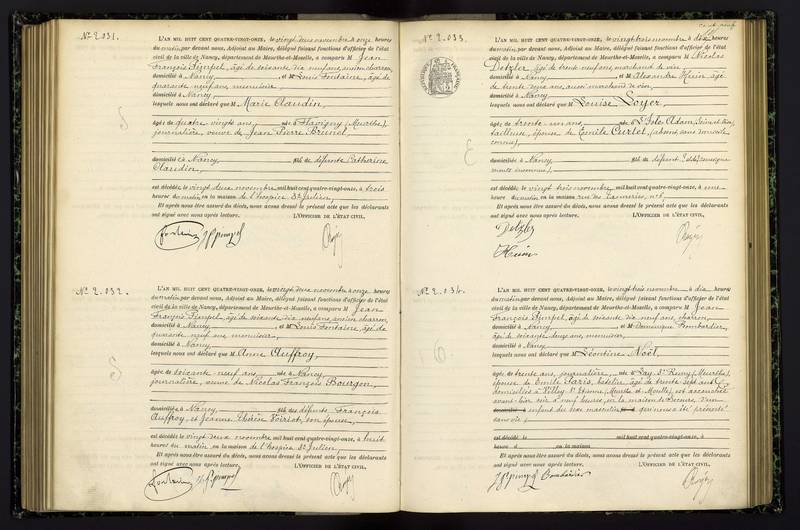 N° 2.031.
L'AN MIL HUIT CENT QUATRE-VINGT-ONZE, le vingt deux novembre à onze heures
du matin par devant nous, Adjoint au Maire, délégué faisant fonctions d'officier de l'état
civil de la ville de Nancy, département de Meurthe-et-Moselle, a comparu M Jean
François Pimpel, âgé de soixante dix neuf ans, ancien charron,
domicilié à Nancy, et M Louis Fontaine, âgé de
quarante neuf ans, menuisier,
domicilié à Nancy
lesquels nous ont déclaré que M Marie Claudin,
âgée de quatre vingts ans, née à Flavigny (Meurthe),
journalière, veuve de Jean Pierre Brunel,
domiciliée à Nancy, fille de défunte Catherine
Claudin,
est décédée le vingt deux novembre mil huit cent quatre-vingt-onze, à trois
heures du matin en la maison de l'hospice St Julien,
Et après nous être assuré du décès, nous avons dressé le présent acte que les déclarants
ont signé avec nous après lecture. L'OFFICIER DE L'ÉTAT CIVIL,
N° 2.032.
L'AN MIL HUIT CENT QUATRE-VINGT-ONZE, le vingt deux novembre à onze heures
du matin par devant nous, Adjoint au Maire, délégué faisant fonctions d'officier de l'état
civil de la ville de Nancy, département de Meurthe-et-Moselle, a comparu M Jean
François Pimpel, âgé de soixante dix neuf ans, ancien charron,
domicilié à Nancy, et M Louis Fontaine, âgé de
quarante neuf ans, menuisier,
domicilié à Nancy
lesquels nous ont déclaré que M Anne Auffroy,
âgée de soixante neuf ans, née à Nancy,
journalière, veuve de Nicolas François Bourgon,
domiciliée à Nancy, fille des défunts François
Auffroy, et Jeanne Thérèse Voiriot, son épouse,
est décédée le vingt deux novembre mil huit cent quatre-vingt-onze, à huit
heures du matin, en la maison de l'hospice St Julien,
Et après nous être assuré du décès, nous avons dressé le présent acte que les déclarants
ont signé avec nous après lecture. L'OFFICIER DE L'ÉTAT CIVIL,
N° 2.033.
L'AN MIL HUIT CENT QUATRE-VINGT-ONZE, le vingt trois novembre à dix heures
du matin, par devant nous, Adjoint au Maire, délégué faisant fonctions d'officier de l'état
civil de la ville de Nancy, département de Meurthe-et-Moselle, a comparu M Nicolas
Detzler, âgé de trente neuf ans, marchand de vin,
domicilié à Nancy, et M Alexandre Husin, âgé
de trente deux ans, aussi marchand de vin,
domicilié à Nancy
lesquels nous ont déclaré que M Louise Loyer,
âgée de trente un ans, née à L'Isle Adam, (Seine et Oise),
tailleuse, épouse de Emile Curlet, (absent, sans domicile
connu),
domiciliée à Nancy, fille de défunt
est décédée le vingt trois novembre mil huit cent quatre-vingt-onze, à une
heure du matin, en la maison rue des Tanneries, n° 6,
Et après nous être assuré du décès, nous avons dressé le présent acte que les déclarants
ont signé avec nous après lecture. L'OFFICIER DE L'ÉTAT CIVIL,
Detzler
Husin
N° 2.034.
L'AN MIL HUIT CENT QUATRE-VINGT-ONZE, le vingt trois novembre à dix heures
du matin par devant nous, Adjoint au Maire, délégué faisant fonctions d'officier de l'état
civil de la ville de Nancy, département de Meurthe-et-Moselle, a comparu M Jean
François Pimpel, âgé de soixante dix neuf ans, charron,
domicilié à Nancy, et M Dominique Bombardier,
âgé de soixante douze ans, menuisier,
domicilié à Nancy
lesquels nous ont déclaré que M Léontine Noël,
âgée de trente ans, journalière, née à Lay St Remy, (Meurthe),
épouse de Emile Paris, batelier, âgé de trente sept ans,
domiciliés à Villey St Etienne, (Meurthe et Moselle), est accouchée
avant-hier soir à neuf heures, en la maison de Secours, d'un
enfant du sexe masculin qui nous a été présenté
sans vie,
est décédé le mil huit cent quatre-vingt-onze, à
heure d en la maison
Et après nous être assuré du décès, nous avons dressé le présent acte que les déclarants
ont signé avec nous après lecture. L'OFFICIER DE L'ÉTAT CIVIL,